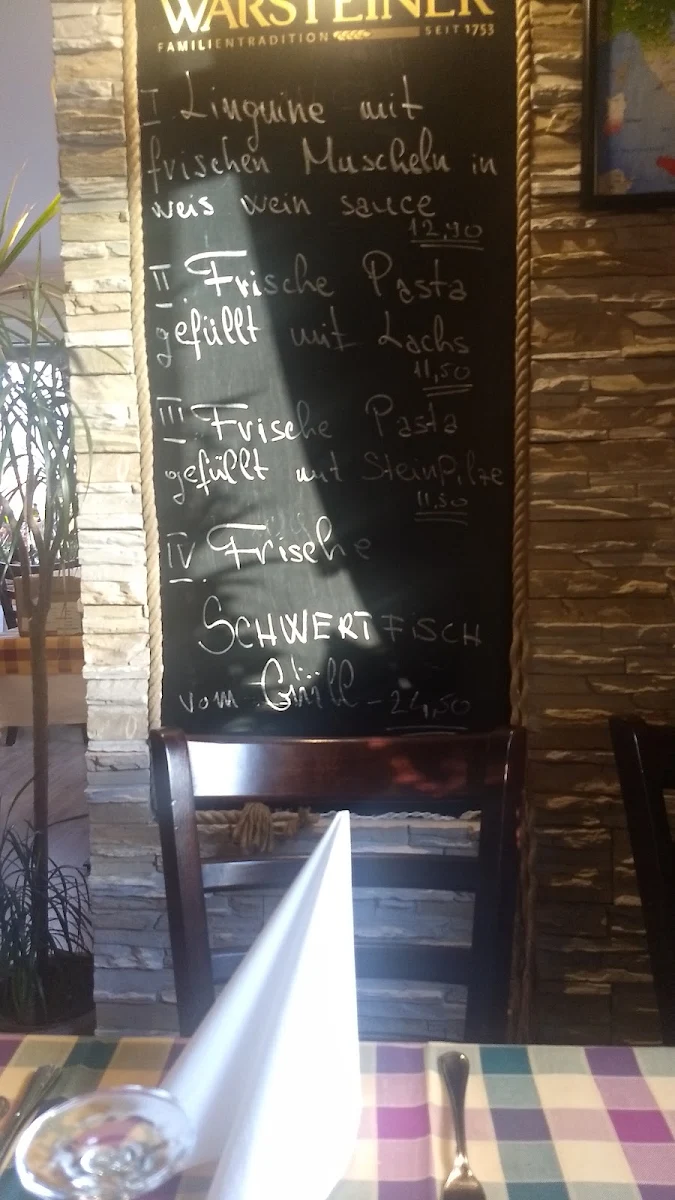 WARSTEINER
FAMILIENTRADITION SEIT 1753
I Linguine mit
frischen Muscheln in
weis wein sauce
12,90
II. Frische Pasta
gefüllt mit Lachs
11,50
III. Frische Pasta
gefüllt mit Steinpilze
11,50
IV. Frische
SCHWERTFISCH
vom Grill - 24,50